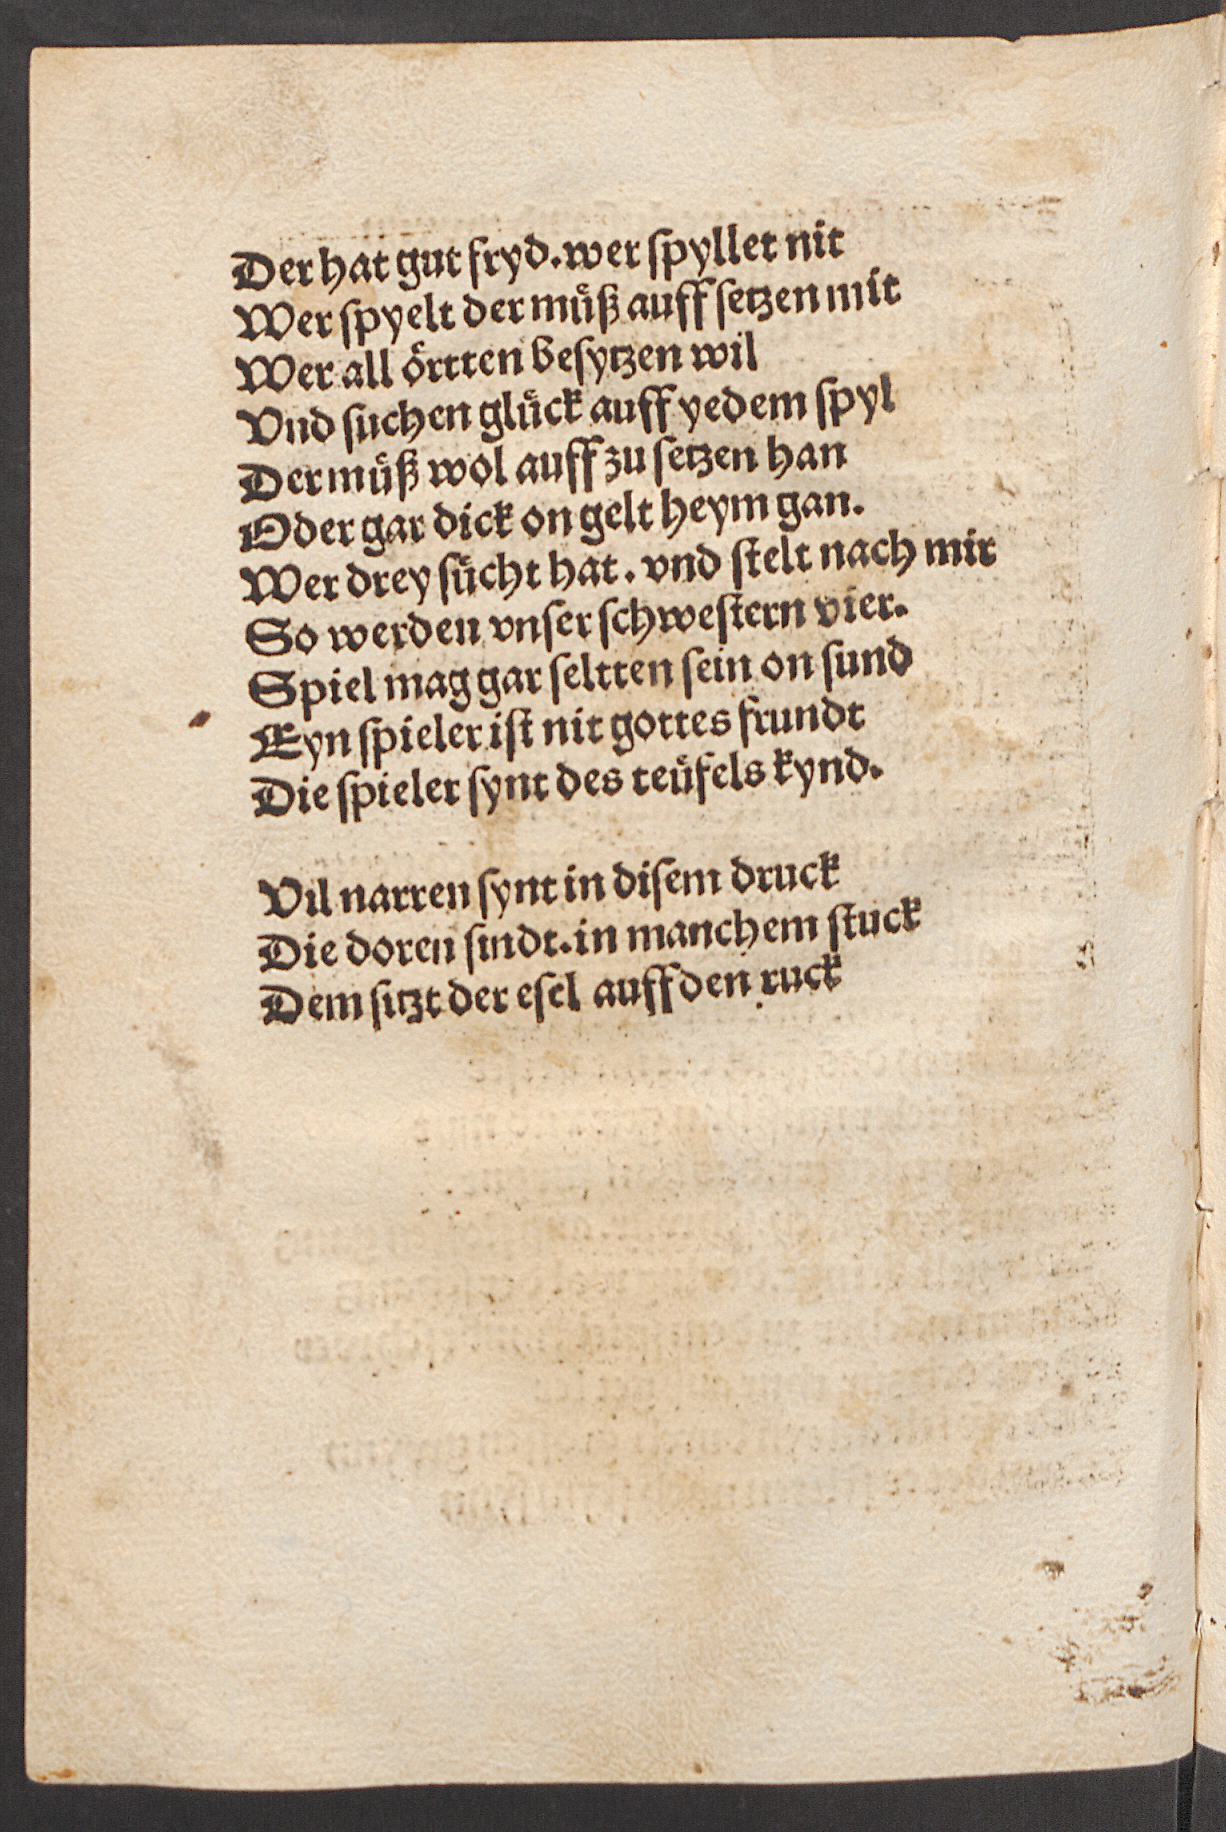 Der hat gut fryd. wer spyllet nit
Wer spyelt der muͤß auff setzen mit
Wer all oͤrtten besytzen wil
Vnd suchen gluͤck auff yedem spyl
Der muͤß wol auff zu setzen han
Oder gar dick on gelt heym gan.
Wer drey suͤcht hat. vnd stelt nach mir
So werden vnser schwestern vier.
Spiel mag gar seltten sein on sund
Eyn spieler ist nit gottes frundt
Die spieler synt des teuͤfels kynd.
Vil narren synt in disem druck
Die doren sindt. in manchem stuck
Dem sitzt der esel auff den ruck